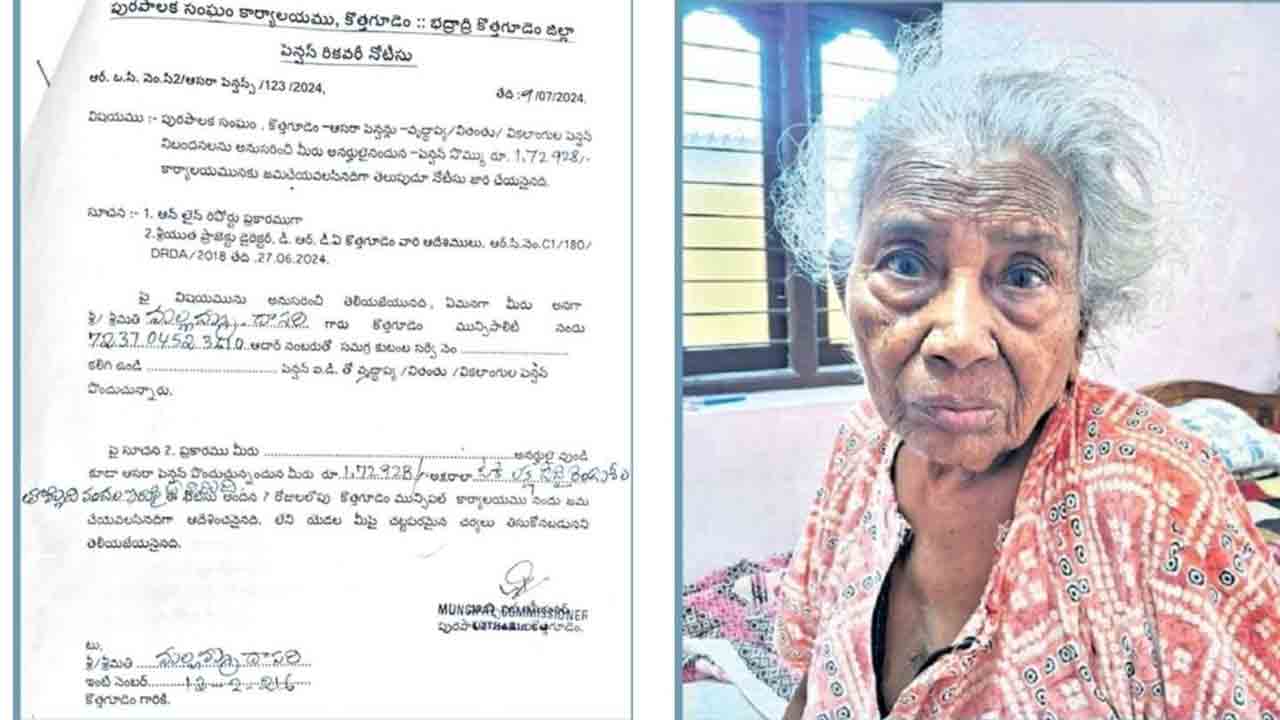 పురపాలక సంఘం కార్యాలయము, కొత్తగూడెం :: భద్రాద్రి కొత్తగూడెం జిల్లా
పెన్షన్ రికవరీ నోటీసు
ఆర్. ఒ.సి. నెం.సి2/ఆసరా పెన్షన్స్ /123 /2024,
తేది : /07/2024.
విషయము :- పురపాలక సంఘం , కొత్తగూడెం –ఆసరా పెన్షన్లు –వృద్ధాప్య/వితంతు/ వికలాంగుల పెన్షన్
నిబంధనలను అనుసరించి మీరు అనర్హులైనందున –పెన్షన్ సొమ్ము రూ. 1,72,928/-
కార్యాలయమునకు జమచేయవలసినదిగా తెలుపుచూ నోటీసు జారి చేయనైనది.
సూచన :- 1. ఆన్ లైన్ రిపోర్టు ప్రకారముగా
2.శ్రీయుత ప్రాజెక్టు డైరెక్టర్, డి. ఆర్. డి.ఏ కొత్తగూడెం వారి ఆదేశములు, ఆర్.సి.నెం.C1/180/
DRDA/2018 తేది .27.06.2024.
పై విషయమును అనుసరించి తెలియజేయునది , ఏమనగా మీరు అనగా
శ్రీ/ శ్రీమతి మల్లమ్మ దాసరి గారు కొత్తగూడెం మున్సిపాలిటి నందు
ఆదార్ నంబరుతో సమగ్ర కుటుంబ సర్వే నెం
కలిగి ఉండి పెన్షన్ ఐ.డి. తో వృద్ధాప్య /వితంతు /వికలాంగుల పెన్షన్
పొందుచున్నారు.
పై సూచన 2. ప్రకారము మీరు అనర్హులై వుండి
కూడా ఆసరా పెన్షన్ పొందుచున్నందున మీరు రూ.1,72,928/-అక్షరాలా
ఈ నోటీసు అందిన 7 రోజులలోపు కొత్తగూడెం మున్సిపల్ కార్యాలయము నందు జమ
చేయవలసినదిగా ఆదేశించనైనది. లేని యెడల మీపై చట్టపరమైన చర్యలు తీసుకోనబడునని
తెలియజేయనైనది.
MUNCIPAL COMMISSIONER
కొత్తగూడెం.
టు,
శ్రీ/శ్రీమతి మల్లమ్మ దాసరి
ఇంటి నెంబర్ 12-2-216
కొత్తగూడెం గారికి.